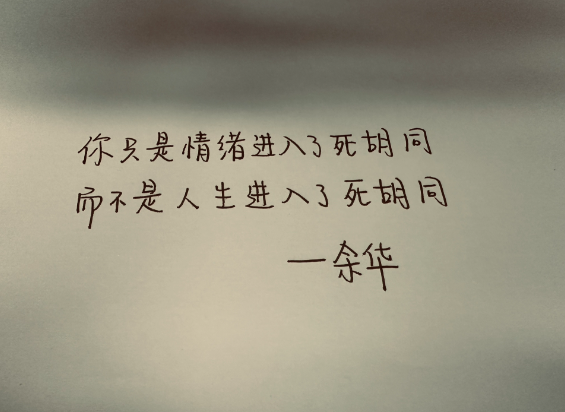 你只是情绪进入了死胡同
而不是人生进入了死胡同
—余华